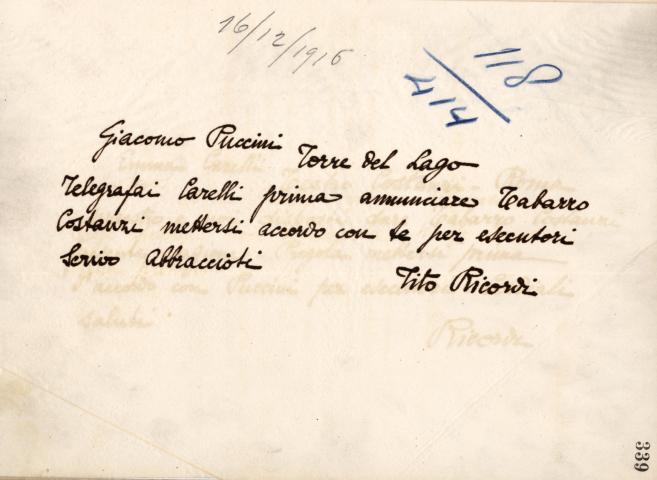 16/12/1916
118
414
Giacomo Puccini Torre del Lago
Telegrafai Carelli prima annunciare Tabarro
Costanzi mettersi accordo con te per esecutori
Scrivo Abbraccioti
Tito Ricordi
Ricordi
339